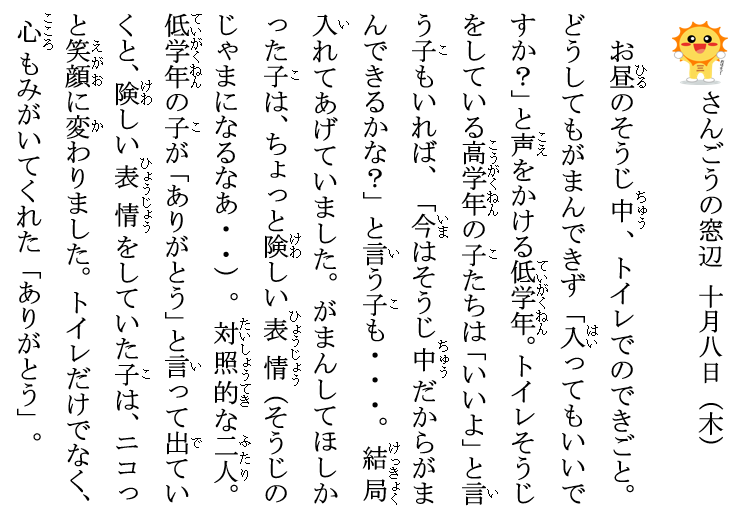 さんごうの窓辺 十月八日（木）
お昼のそうじ中、トイレでのできごと。
どうしてもがまんできず「入ってもいいで
すか？」と声をかける低学年。トイレそうじ
をしている高学年の子たちは「いいよ」と言
う子もいれば、「今はそうじ中だからがま
んできるかな？」と言う子も・・・。結局
入れてあげていました。がまんしてほしか
った子は、ちょっと険しい表情（そうじの
じゃまになるなあ・・）。対照的な二人。
低学年の子が「ありがとう」と言って出てい
くと、険しい表情をしていた子は、ニコっ
と笑顔に変わりました。トイレだけでなく、
心もみがいてくれた「ありがとう」。